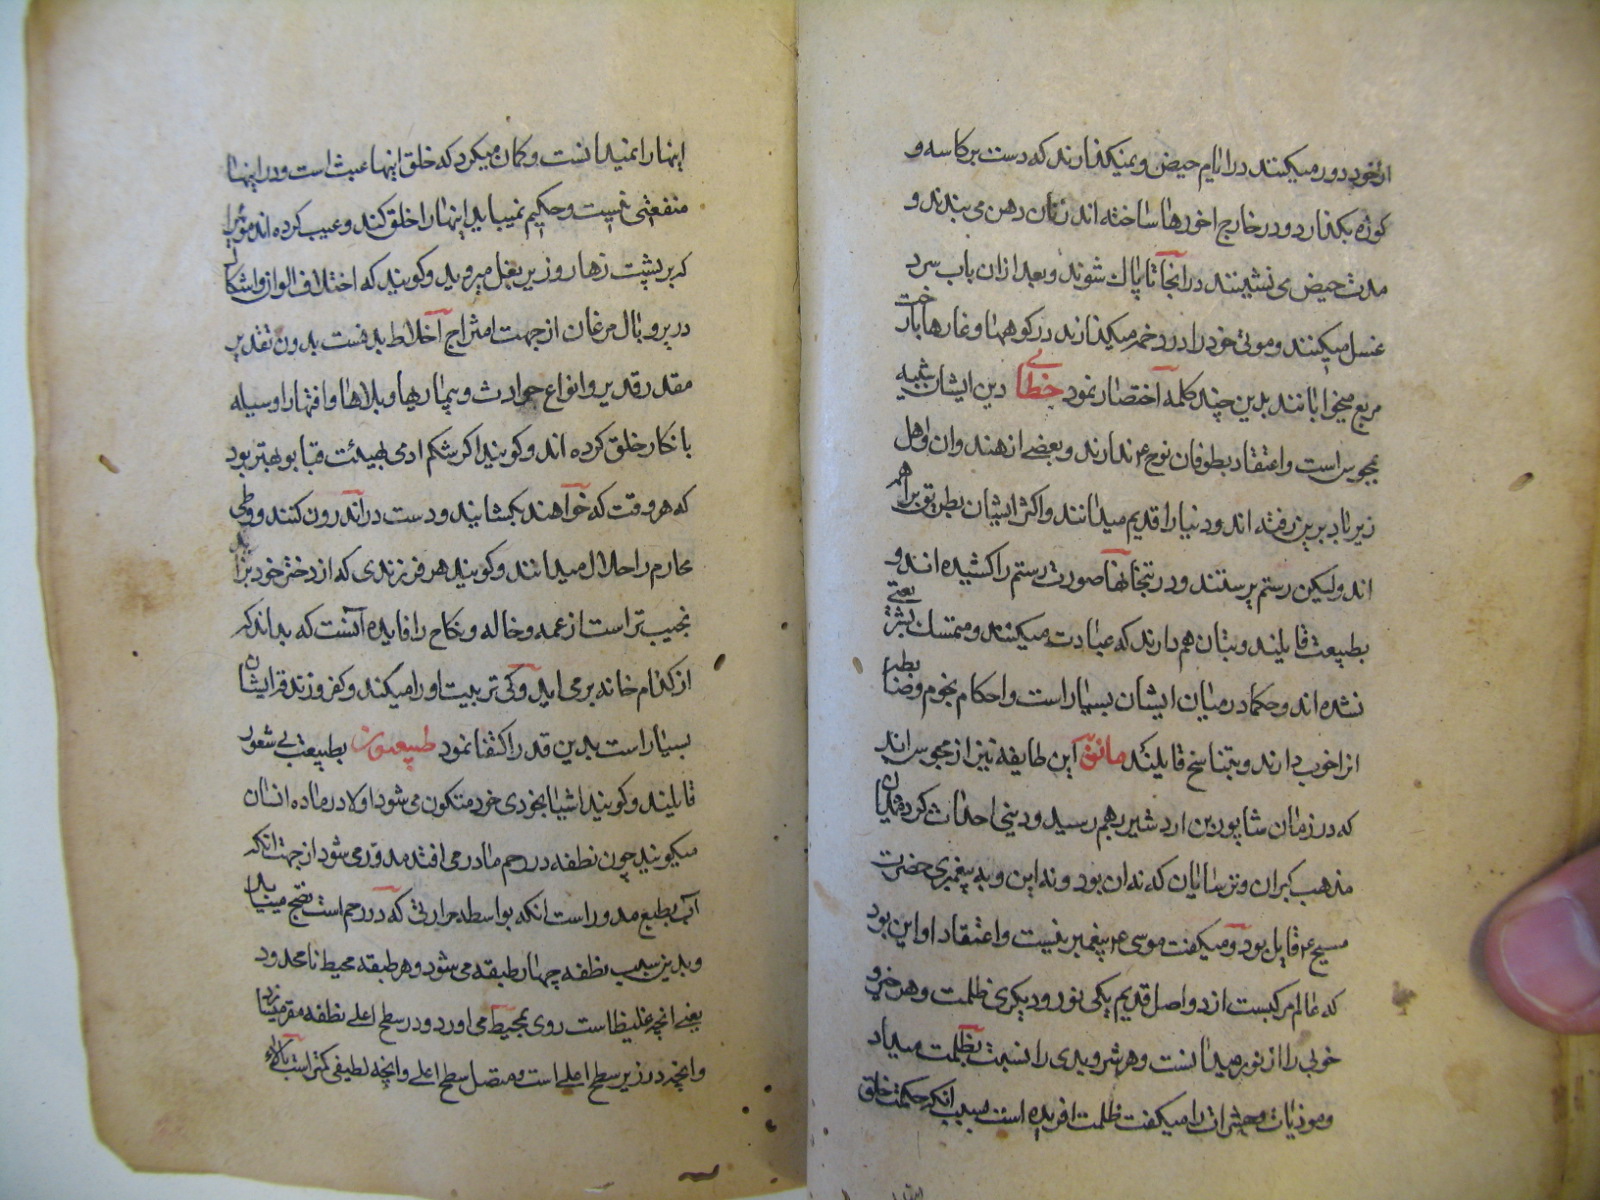 از خود دور میکنند در ایام حیض و نمیکذارند که دست بر کاسه و
کوزه بکذارد و در خارج اخورها ساخته اند زنان رهن می بندند و
مدت حیض می نشینند در انجا تا پاک شوند و بعد از ان باب سرد
غسل میکنند و موتی خود را در خمر میکذارند در کوهها و غارها
مربع میخوابانند بدین چند کلمه اختصار نمود خطائے دین ایشان شبیه
مجوس است و اعتقاد بطوفان نوح ع ندارند و بعضی از هند وان و اهل
زیرباد برین رفته اند و دنیا را قدیم میدانند و اکثر ایشان بطریق براهمه
اند و لیکن رستم پرستند و در بتخانها صورت رستم را کشیده اند و
بطبیعت قایلیند و بتان هم دارند که عبادت میکنند و متمسک بشریعتی
نشده اند و حکما در میان ایشان بسیار است و احکام نجوم و
انرا خوب دارند و بتناسخ قایلیند مانوی این طایفه نیز از مجوس اند
که در زمان شاپور بن اردشیر بهم رسید و دینی احداث کرد میان
مذهب کبران و ترسایان که نه ان بود و نه این و به پیغمبری حضرت
مسیح ع قایل بود و میکفت موسی ع پیغمبر نیست و اعتقاد او این بود
که عالم مرکبست از دو اصل قدیم یکی نور و دیکری ظلمت و هر خیر و
خوبی را از نور میدانست و هر شر و بدی را نسبت بظلمت میداد
و موذیات و حشرات را میکفت ظلمت افریده است بسبب انکه حکمت خلق
اینها را نمیدانست و کمان میکرد که خلق اینها عبث است و در اینها
منفعتی نیست و حکیم نمیباید اینها را خلق کند و عیب کرده اند موئیرا
که بر پشت زهار و زیر بغل میروید و کویند که اختلاف الوان و اشکال
در پر و بال مرغان از جهت امتزاج اخلاط بدنست بدون تقدیر
مقدر قدیر و انواع حوادث و بیماریها و بلاها و افتها را وسیله
بانکار خلق کرده اند و کویند اکر شکم ادمی بهیئت قبا بود بهتر بود
که هر وقت که خواهند بکشایند و دست در اندرون کنند و وطی
محارم را حلال میدانند و کویند هر فرزندی که از دختر خود بزاید
نجیب تر است از عمه و خاله و نکاح را فایده انست که بداند که
از کدام خانه بر می اید و کی تربیت او را میکند و کفر و زندقه ایشان
بسیار است بدین قدر اکتفا نمود طبیعیون بطبیعت بی شعور
قایلیند و کویند اشیا بخودی خود متکون می شود اولا در ماده انسان
میکویند چون نطفه در رحم مادر می افتد مدور می شود از جهت انکه
آب بطبع مدور است انکه بواسطه حرارتی که در رحم است نضج مییابد
و بدین سبب نطفه چهار طبقه می شود و هر طبقه محیط نامحدود
یعنی انچه غلیظ است روی بمحیط می اورد و در سطح اعلی نطفه مقر میسازد
و انچه در زیر سطح اعلی است و متصل سطح اعلی و انچه لطیفی کمتر است